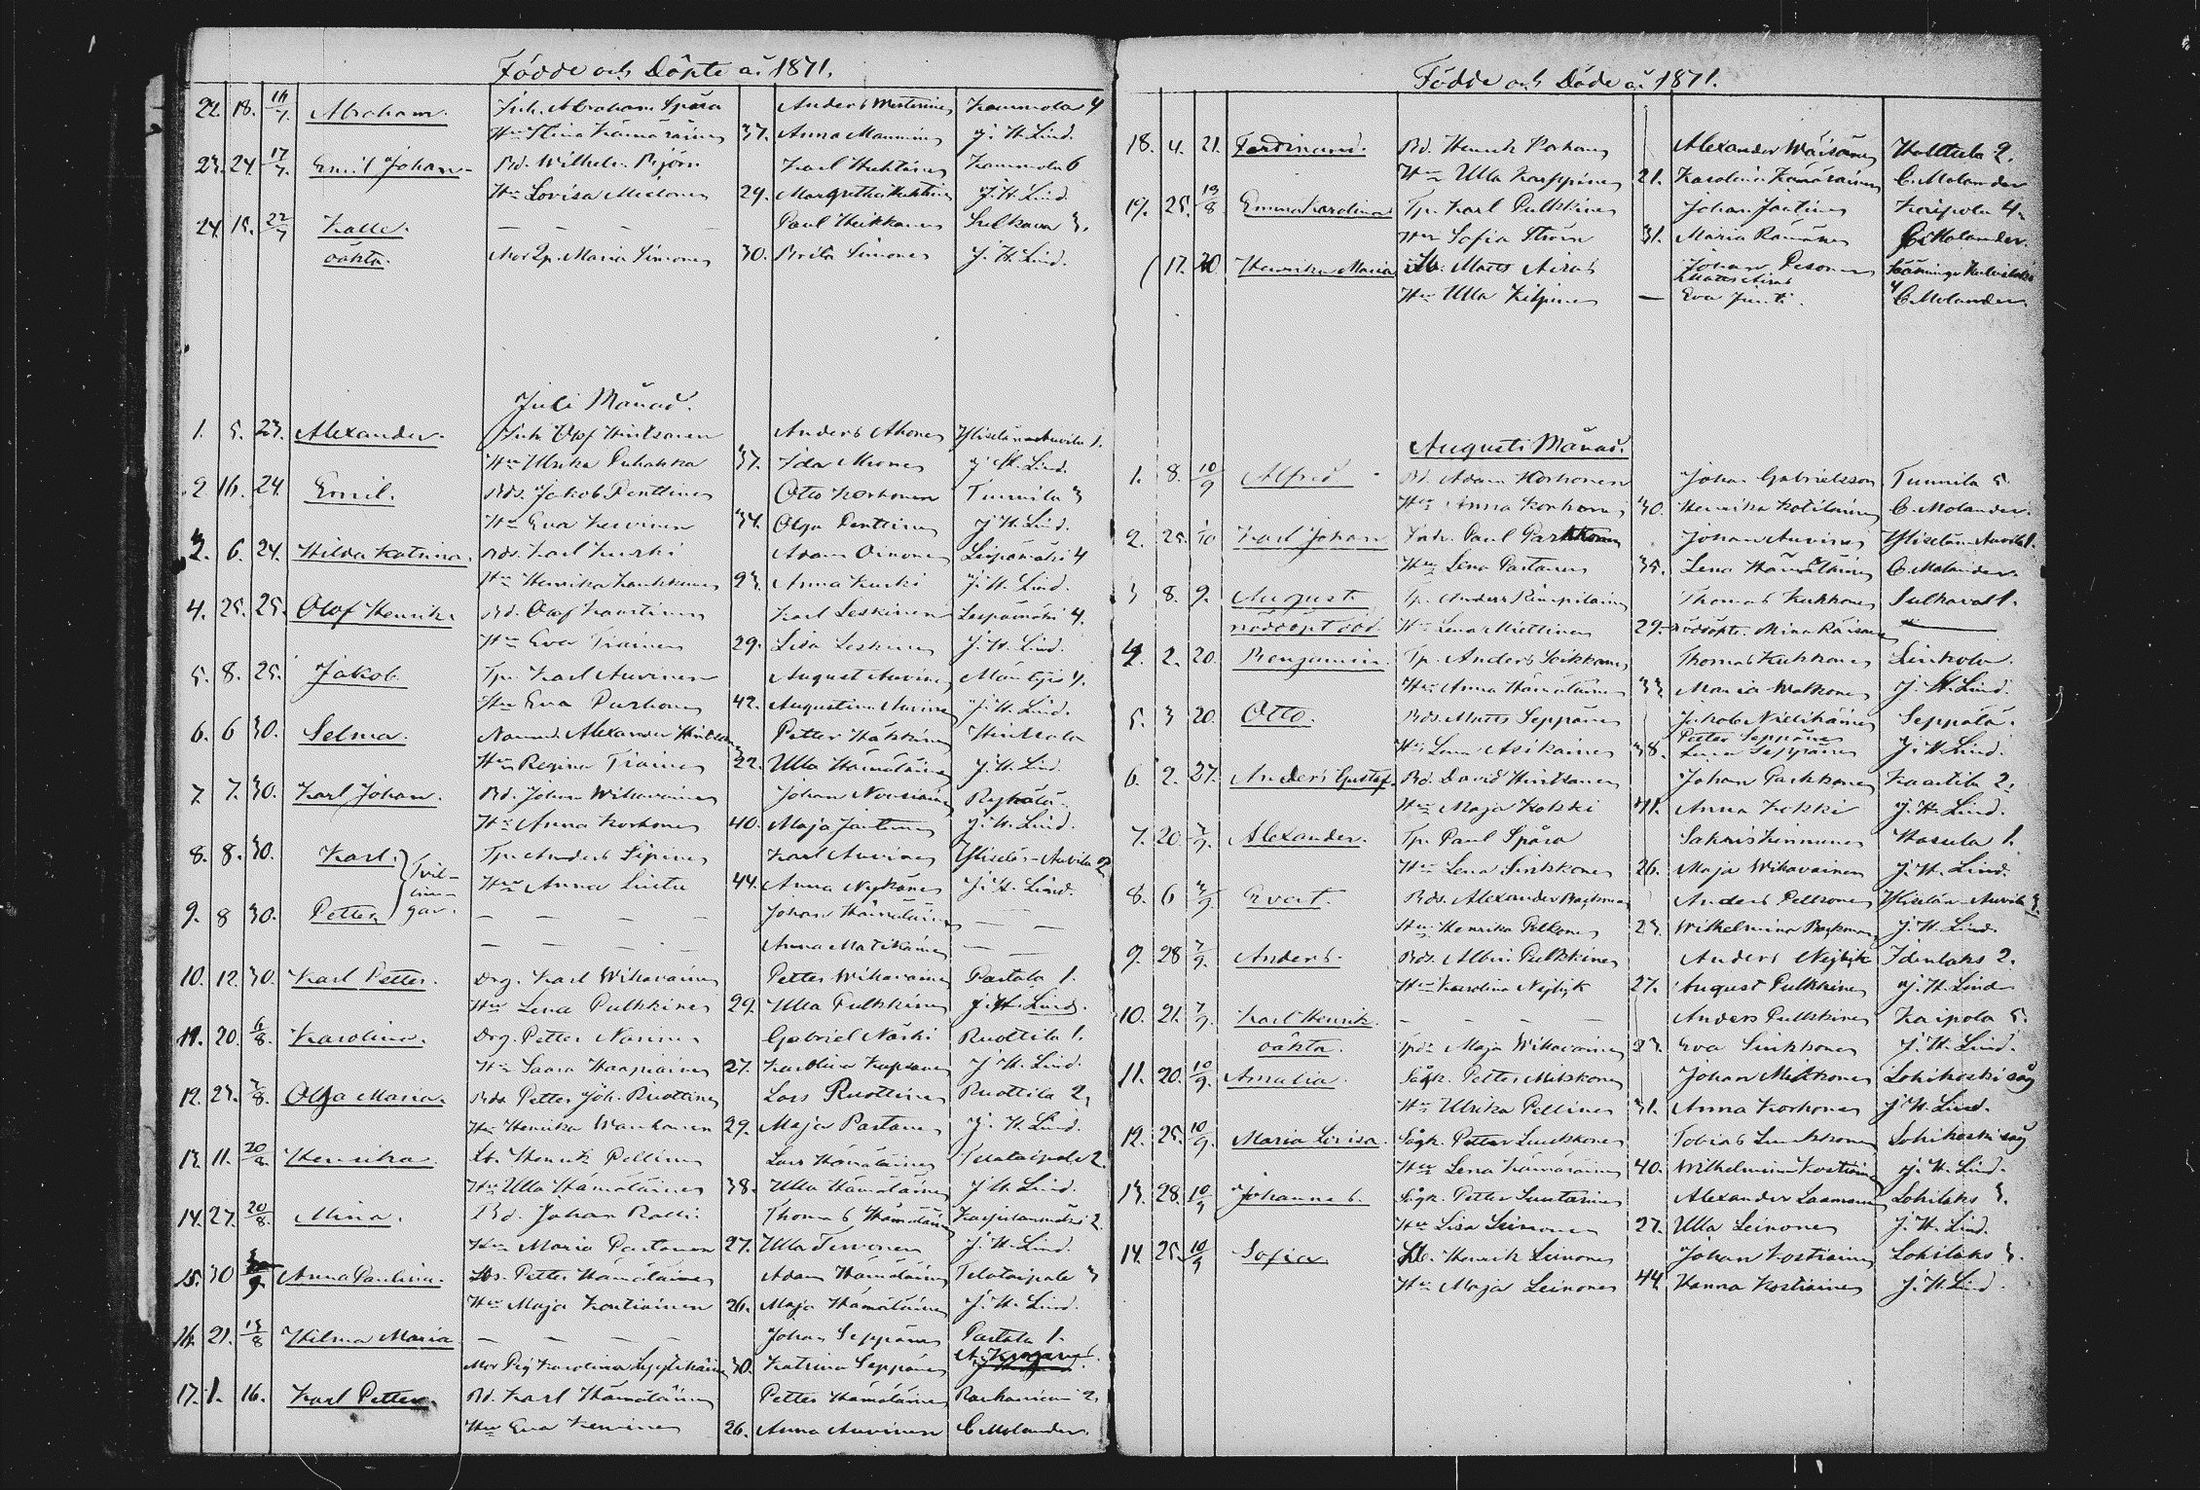 Födde och Döpte år 1871.
22. 18. 16/7. Abraham. Inh. Abraham Spåra Anders Kammola 4
Hu Stina Kämäräinen 37. Anna Manninen J. H. Lind.
23. 24. 17/7. Emil Johan Bd. Wilhelm Björn Karl Huhtinen Kammola 6
Hu Lovisa 29. Margretha Huhtinen J. H. Lind
24. 15. 22/7 Kalle. — — — Paul Heikkanen Sulkava 3.
oäkta. Mor Pig. Maria Simonen 30. Brita Simonen J. H. Lind.
Juli Månad.
1. 5. 23. Alexander. Inh. Olof Hintsanen Anders Ahonen Iitlahti Auvila 1.
Hu Ulrika Puhakka 37. Ida Ahonen J. H. Lind.
2 16. 24. Emil. Bds. Jakob Penttinen Otto Korhonen Tunnila 3
Hu Eva Kervinen 34. Olga Penttinen J. H. Lind.
3. 6. 24. Hilda Katrina. Bds. Karl Kurki Adam Oinonen Leipämäki 4
Hu Henrika Laukkanen 23. Anna Kurki J. H. Lind.
4. 25. 25. Olof Henrik. Bd. Olof Kaartinen Karl Leskinen Leipämäki 4.
Hu Eva Tiainen 29. Lisa Leskinen J. H. Lind.
5. 8. 25. Jakob Tp. Karl Auvinen August Auvinen 4.
Hu Eva Purhonen 42. Augustina Auvinen J. H. Lind.
6. 6 30. Selma. Alexander Petter Häkkinen
Hu Regina Tiainen 22. Ulla Hämäläinen J. H. Lind.
7. 7. 30. Karl Johan. Bd. Johan Wihavainen Johan Nousiainen
Hu Anna Korhonen 40. Maja Jantunen J. H. Lind.
8. 8. 30. Karl. Tvil- Tp. Anders Sipinen Karl Auvinen Auvila 2
lin- Hu Anna Lintu 44. Anna Nykänen J. H. Lind.
9. 8 30. Petter gar. — — — — Johan Hämäläinen — —
— — — — Anna Matikainen —
10. 12. 30. Karl Petter. Drg. Karl Wihavainen Petter Wihavainen Partala 1.
Hu Lena Pulkkinen 29. Ulla Pulkkinen J. H. Lind.
11. 20. 6/8. Karolina. Drg. Petter Narinen Gabriel Näski Ruottila 1.
Hu Saara Haapiainen 27. Karolina J. H. Lind.
12. 23. 7/8. Olga Maria. Bds. Petter Joh. Ruottinen Lars Ruottinen Ruottila 2.
Hu Henrika Wanhanen 29. Maja Partanen J. H. Lind.
13. 11. 20/8. Henrika. Lb. Henrik Pellinen Lars Hämäläinen Telataipale 2.
Hu Ulla Hämäläinen 38. Ulla Hämäläinen J. H. Lind.
14. 27. 20/8. Mina. Bd. Johan Ralli Thomas Hämäläinen 2.
Hu Maria Partanen 27. Ulla Tervonen J. H. Lind.
15. 30 Anna Paulina. Lbs. Petter Hämäläinen Adam Hämäläinen Telataipale 3
Hu Maja Kontiainen 26. Maja Hämäläinen J. H. Lind.
16. 21. 13/8 Hilma Maria — — — — Johan Seppänen Partala 1.
Mor Pig. Karolina 30. Katrina Seppänen
17. 1. 16. Karl Petter. Bd. Karl Hämäläinen Petter Hämäläinen Rauhaniemi 2.
Hu Eva Kervinen 26. Anna Auvinen C. Molander.
Födde och Döde år 1871.
18. 4. 21. Ferdinand. Bd. Henrik Alexander Väisänen Halttula 2.
Hu Ulla Karppinen 21. Karolina Kämäräinen C. Molander
19. 25. 19/8 Emma Karolina Tp. Karl Pulkkinen Johan Jantunen Kaipola 4.
Hu Sofia Ström 31. Maria Räisänen C. Molander.
17. 20 Henrika Maria Lb. Matts Airas Johan Pesonen
Matts Airas
Hu Ulla Kilpinen — Eva C. Molander
Augusti Månad.
1. 8. 10/9 Alfred Bd. Adam Korhonen Johan Gabrielsson Tunnila 5.
Hu Anna Korhonen 30. Henrika Kotilainen C. Molander.
2. 25. 1/10 Karl Johan Inh. Paul Parkkonen Johan Auvinen Auvila 1.
Hu Lena Partanen 35. Lena Hämäläinen C. Molander
3 8. 9. August Tp. Anders Kimpilainen Thomas Kukkonen Sulkava 1.
nöddöpt död. Hu Lena Miettinen 29. nöddöpte. Mina Räisänen —
4. 2. 20. Benjamin. Tp. Anders Seikkanen Thomas Kukkonen Linkola.
Hu Anna Hämäläinen 33 Maria Matkonen J. H. Lind.
5. 3 20. Otto. Bds. Matts Seppänen Jakob Seppälä.
Petter Seppänen
Hu Lena Asikainen 38. Lena Seppänen J. H. Lind.
6. 2. 27. Anders Gustaf. Bd. David Hintsanen Johan Parkkonen Kaartila 2.
Hu Maja Kokki 41. Anna Kokki J. H. Lind.
7. 20. 3/9. Alexander. Tp. Paul Spåra Sakris Kinnunen Hasula 1.
Hu Lena Sinkkonen 26. Maja Wihavainen J. H. Lind.
8. 6 3/9. Evert. Bds. Alexander Backman Anders Pelkonen Auvila 3.
Hu Henrika Pelkonen 23. Wilhelmina Backman J. H. Lind.
9. 28 7/9. Anders. Bds. Albin Pulkkinen Anders Nejlyk Idenlaks 2.
Hu Karolina Nejlyk 27. August Pulkkinen J. H. Lind
10. 21. 7/9. Karl Henrik. — — — — Anders Pulkkinen Kaipola 5.
oäkta. Maja Wihavainen 23. Eva Sinkkonen J. H. Lind.
11. 20. 10/9. Amalia. Sågk. Petter Mikkonen Johan Mikkonen Lohikoski såg
Hu Ulrika Pellinen 31. Anna Korhonen J. H. Lind.
12. 25. 10/9. Maria Lovisa. Sågk. Petter Luukkonen Tobias Luukkonen Lohikoski såg
Hu Lena Kämäräinen 40. Wilhelmina Kostiainen J. H. Lind.
13. 28. 10/9 Johannes. Sågk. Petter Suutarinen Alexander Laamanen Lohilaks 3.
Hu Lisa Leinonen 27. Ulla Leinonen J. H. Lind.
14. 25. 10/9 Sofia. Lb. Henrik Leinonen Johan Kostiainen Lohilaks 3.
Hu Maja Leinonen 44. Hanna Kostiainen J. H. Lind